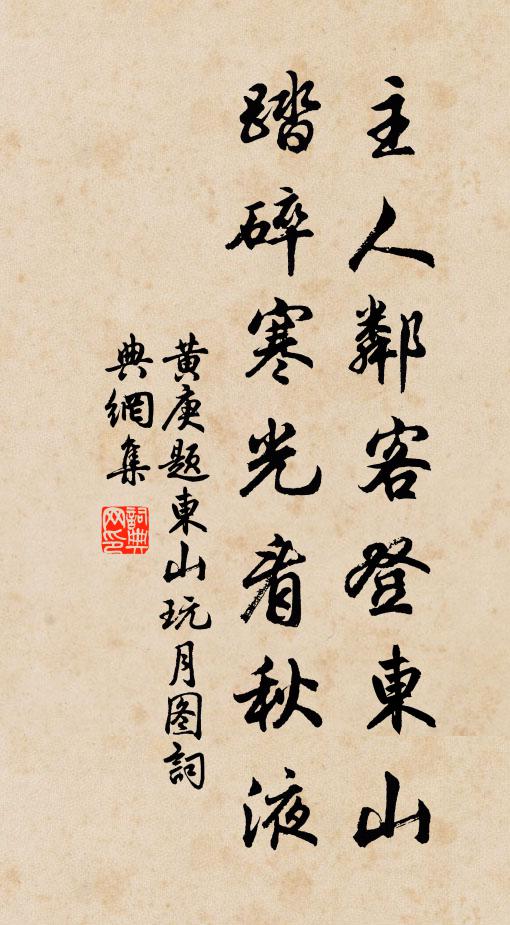 主人鄰客登東山
踏碎寒光看秋液
黃庚題東山玩月图詞
典網集
詞典
网印